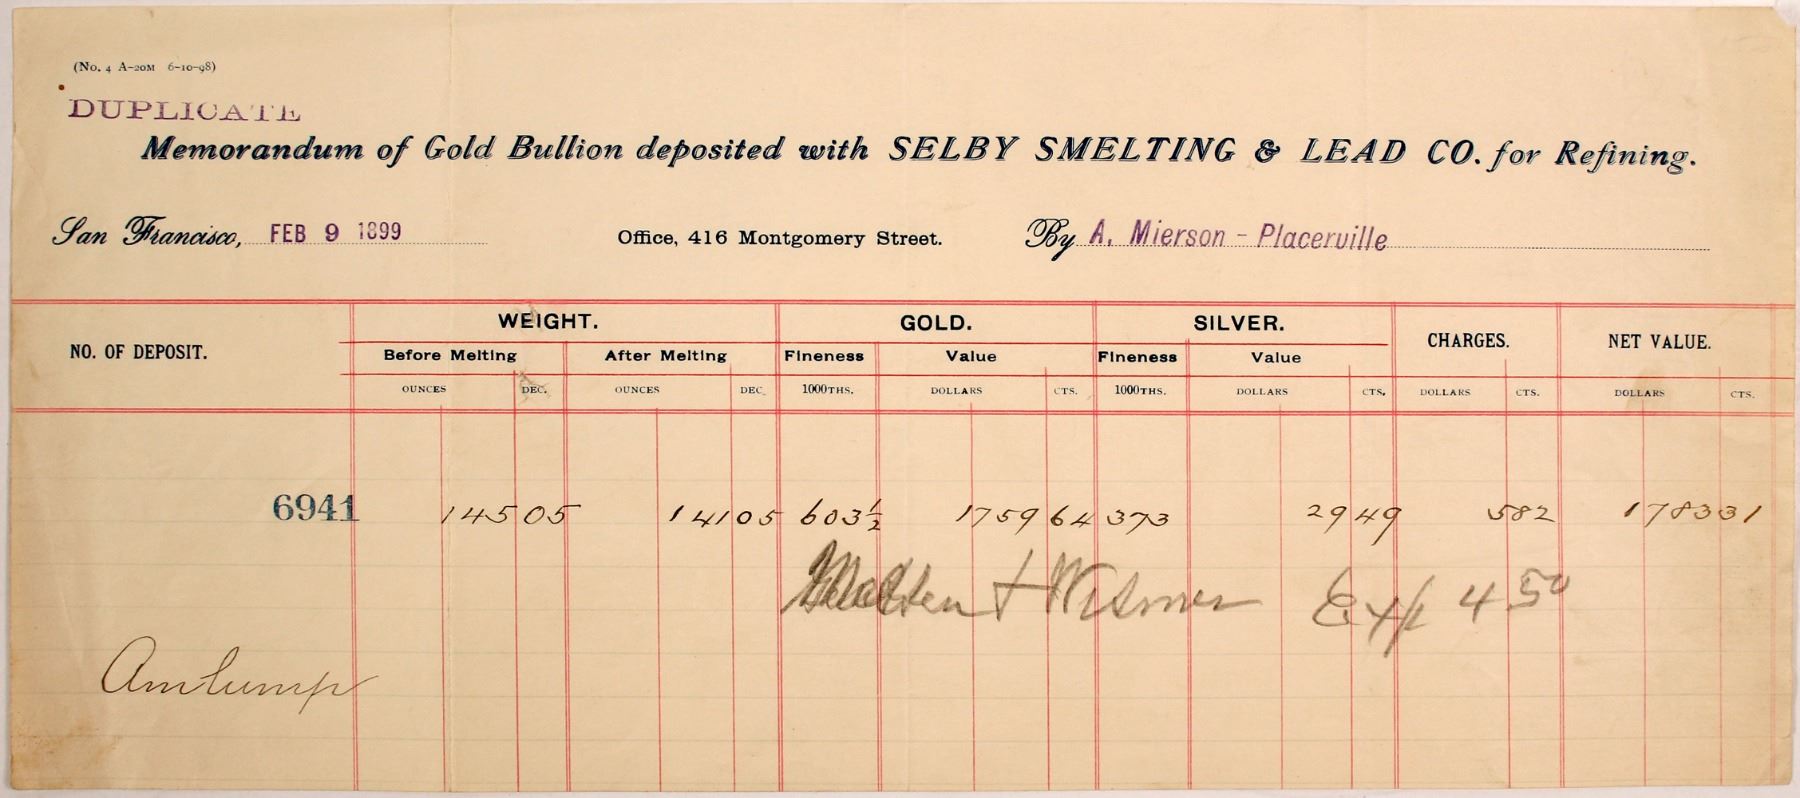 (No. 4 A-20M 6-10-98)
DUPLICATE
Memorandum of Gold Bullion deposited with SELBY SMELTING & LEAD CO. for Refining.
San Francisco, FEB 9 1899 Office, 416 Montgomery Street. By A. Mierson - Placerville
NO. OF DEPOSIT. WEIGHT. GOLD. SILVER. CHARGES. NET VALUE.
Before Melting After Melting Fineness Value Fineness Value
OUNCES DEC. OUNCES DEC. 1000THS. DOLLARS CTS. 1000THS. DOLLARS CTS. DOLLARS CTS. DOLLARS CTS.
6941 145 05 141 05 603½ 1759 64 373 29 49 5 82 1783 31
+ Exp 4 50